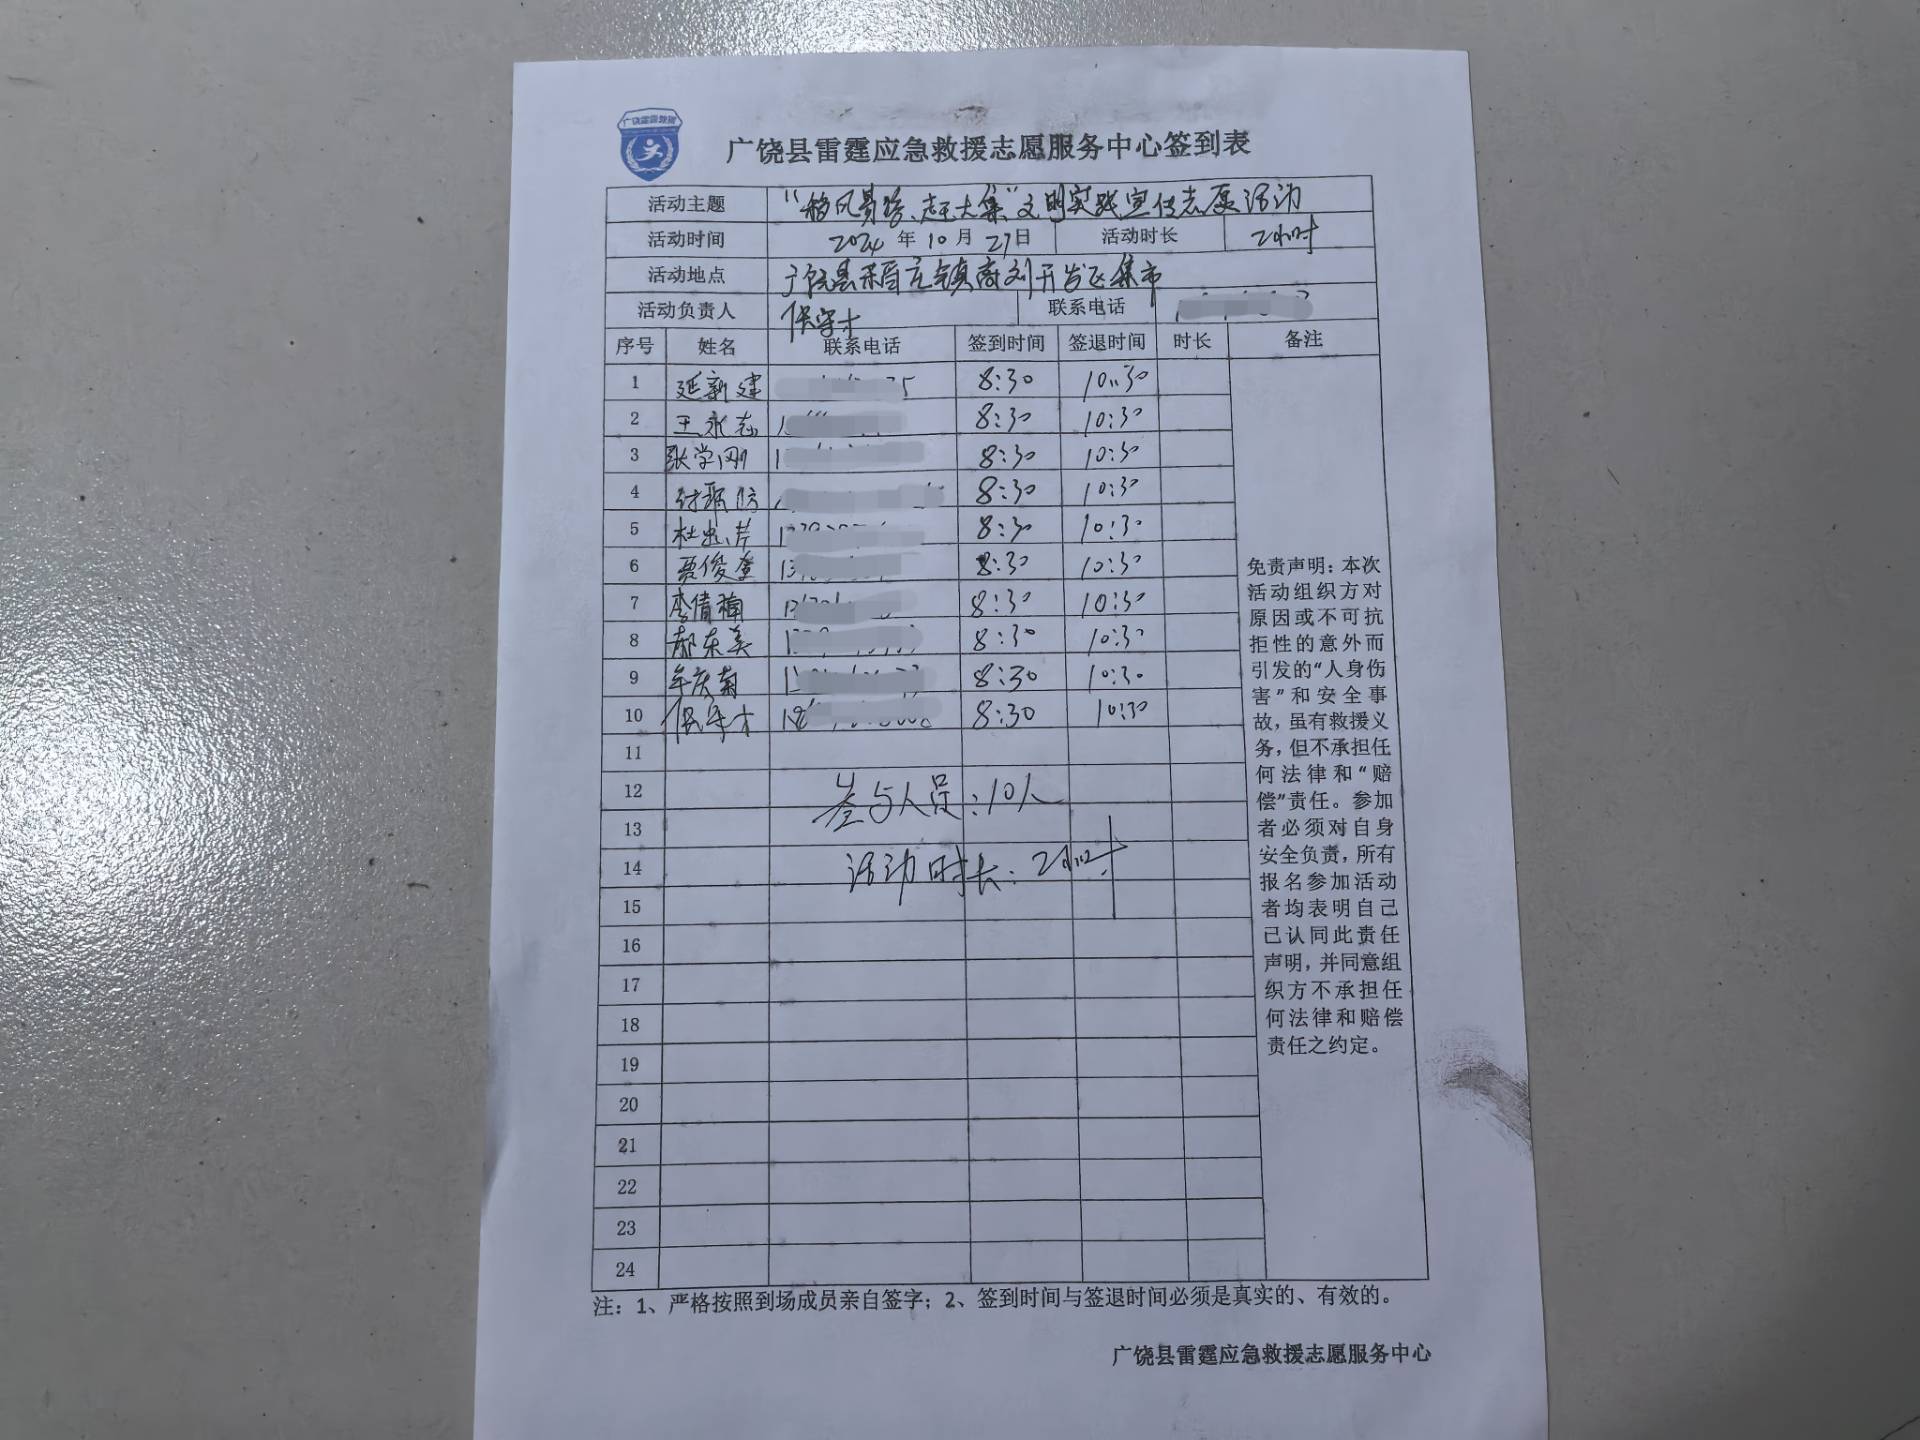 广饶雷霆救援
广饶县雷霆应急救援志愿服务中心签到表
活动主题 “移风易俗、赶大集”文明实践宣传志愿活动
活动时间 2024 年 10 月 27 日 活动时长 2小时
活动地点 广饶县稻庄镇高刘开发区集市
活动负责人 保守才 联系电话
序号 姓名 联系电话 签到时间 签退时间 时长 备注
1 延新建 8:30 10:30
2 王永志 8:30 10:30
3 张学刚 8:30 10:30
4 8:30 10:30
5 杜 芹 8:30 10:30
6 贾俊奎 8:30 10:30
7 李倩楠 8:30 10:30
8 郝东美 8:30 10:30
9 年庆菊 8:30 10:30
10 保守才 8:30 10:30
11
12
13
14
15
16
17
18
19
20
21
22
23
24
参与人员:10人
活动时长:2小时
免责声明：本次
活动组织方对
原因或不可抗
拒性的意外而
引发的“人身伤
害”和安全事
故，虽有救援义
务，但不承担任
何法律和“赔
偿”责任。参加
者必须对自身
安全负责，所有
报名参加活动
者均表明自己
已认同此责任
声明，并同意组
织方不承担任
何法律和赔偿
责任之约定。
注：1、严格按照到场成员亲自签字；2、签到时间与签退时间必须是真实的、有效的。
广饶县雷霆应急救援志愿服务中心